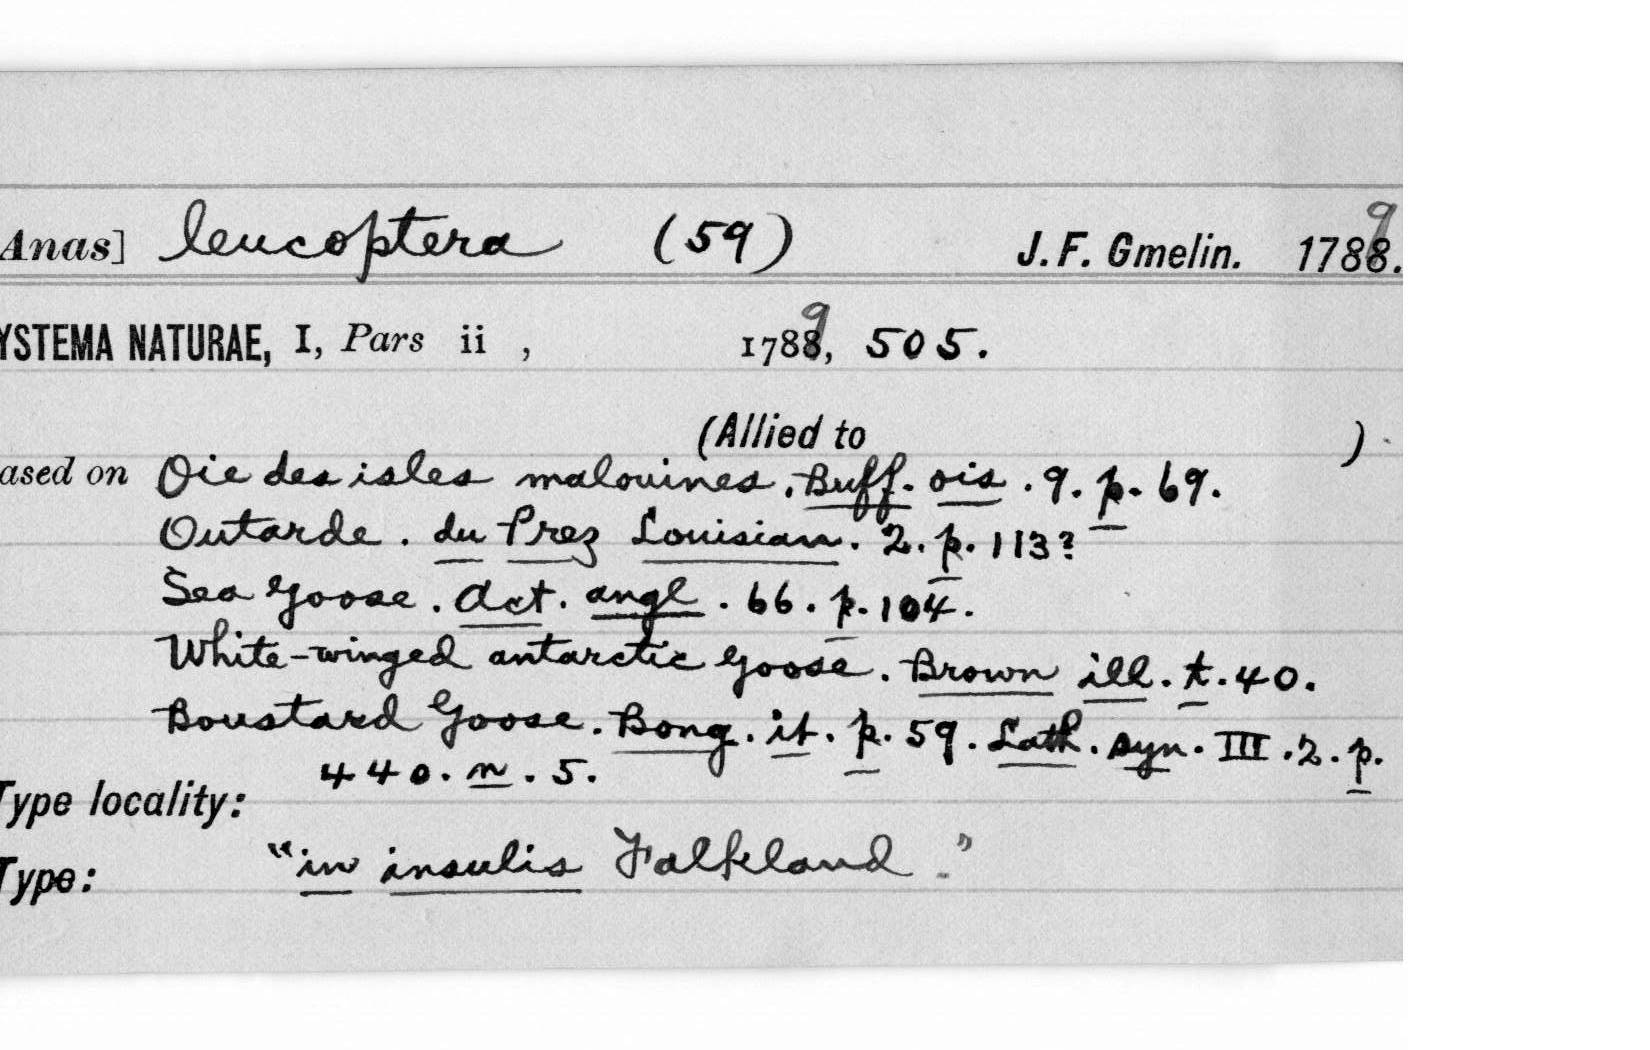 Anas] leucoptera (59) J. F. Gmelin. 1788. 9
YSTEMA NATURAE, I, Pars ii , 1788, 9 505.
(Allied to )
ased on Oie des isles malouines. Buff. ois. 9. p. 69.
Outarde. du Prez Louisian. 2. p. 113?
Sea Goose. Act. angl. 66. p. 104.
White-winged antarctic Goose. Brown ill. t. 40.
Boustard Goose. Boug. it. p. 59. Lath. syn. III. 2. p.
440. n. 5.
Type locality:
"in insulis Falkland."
Type: